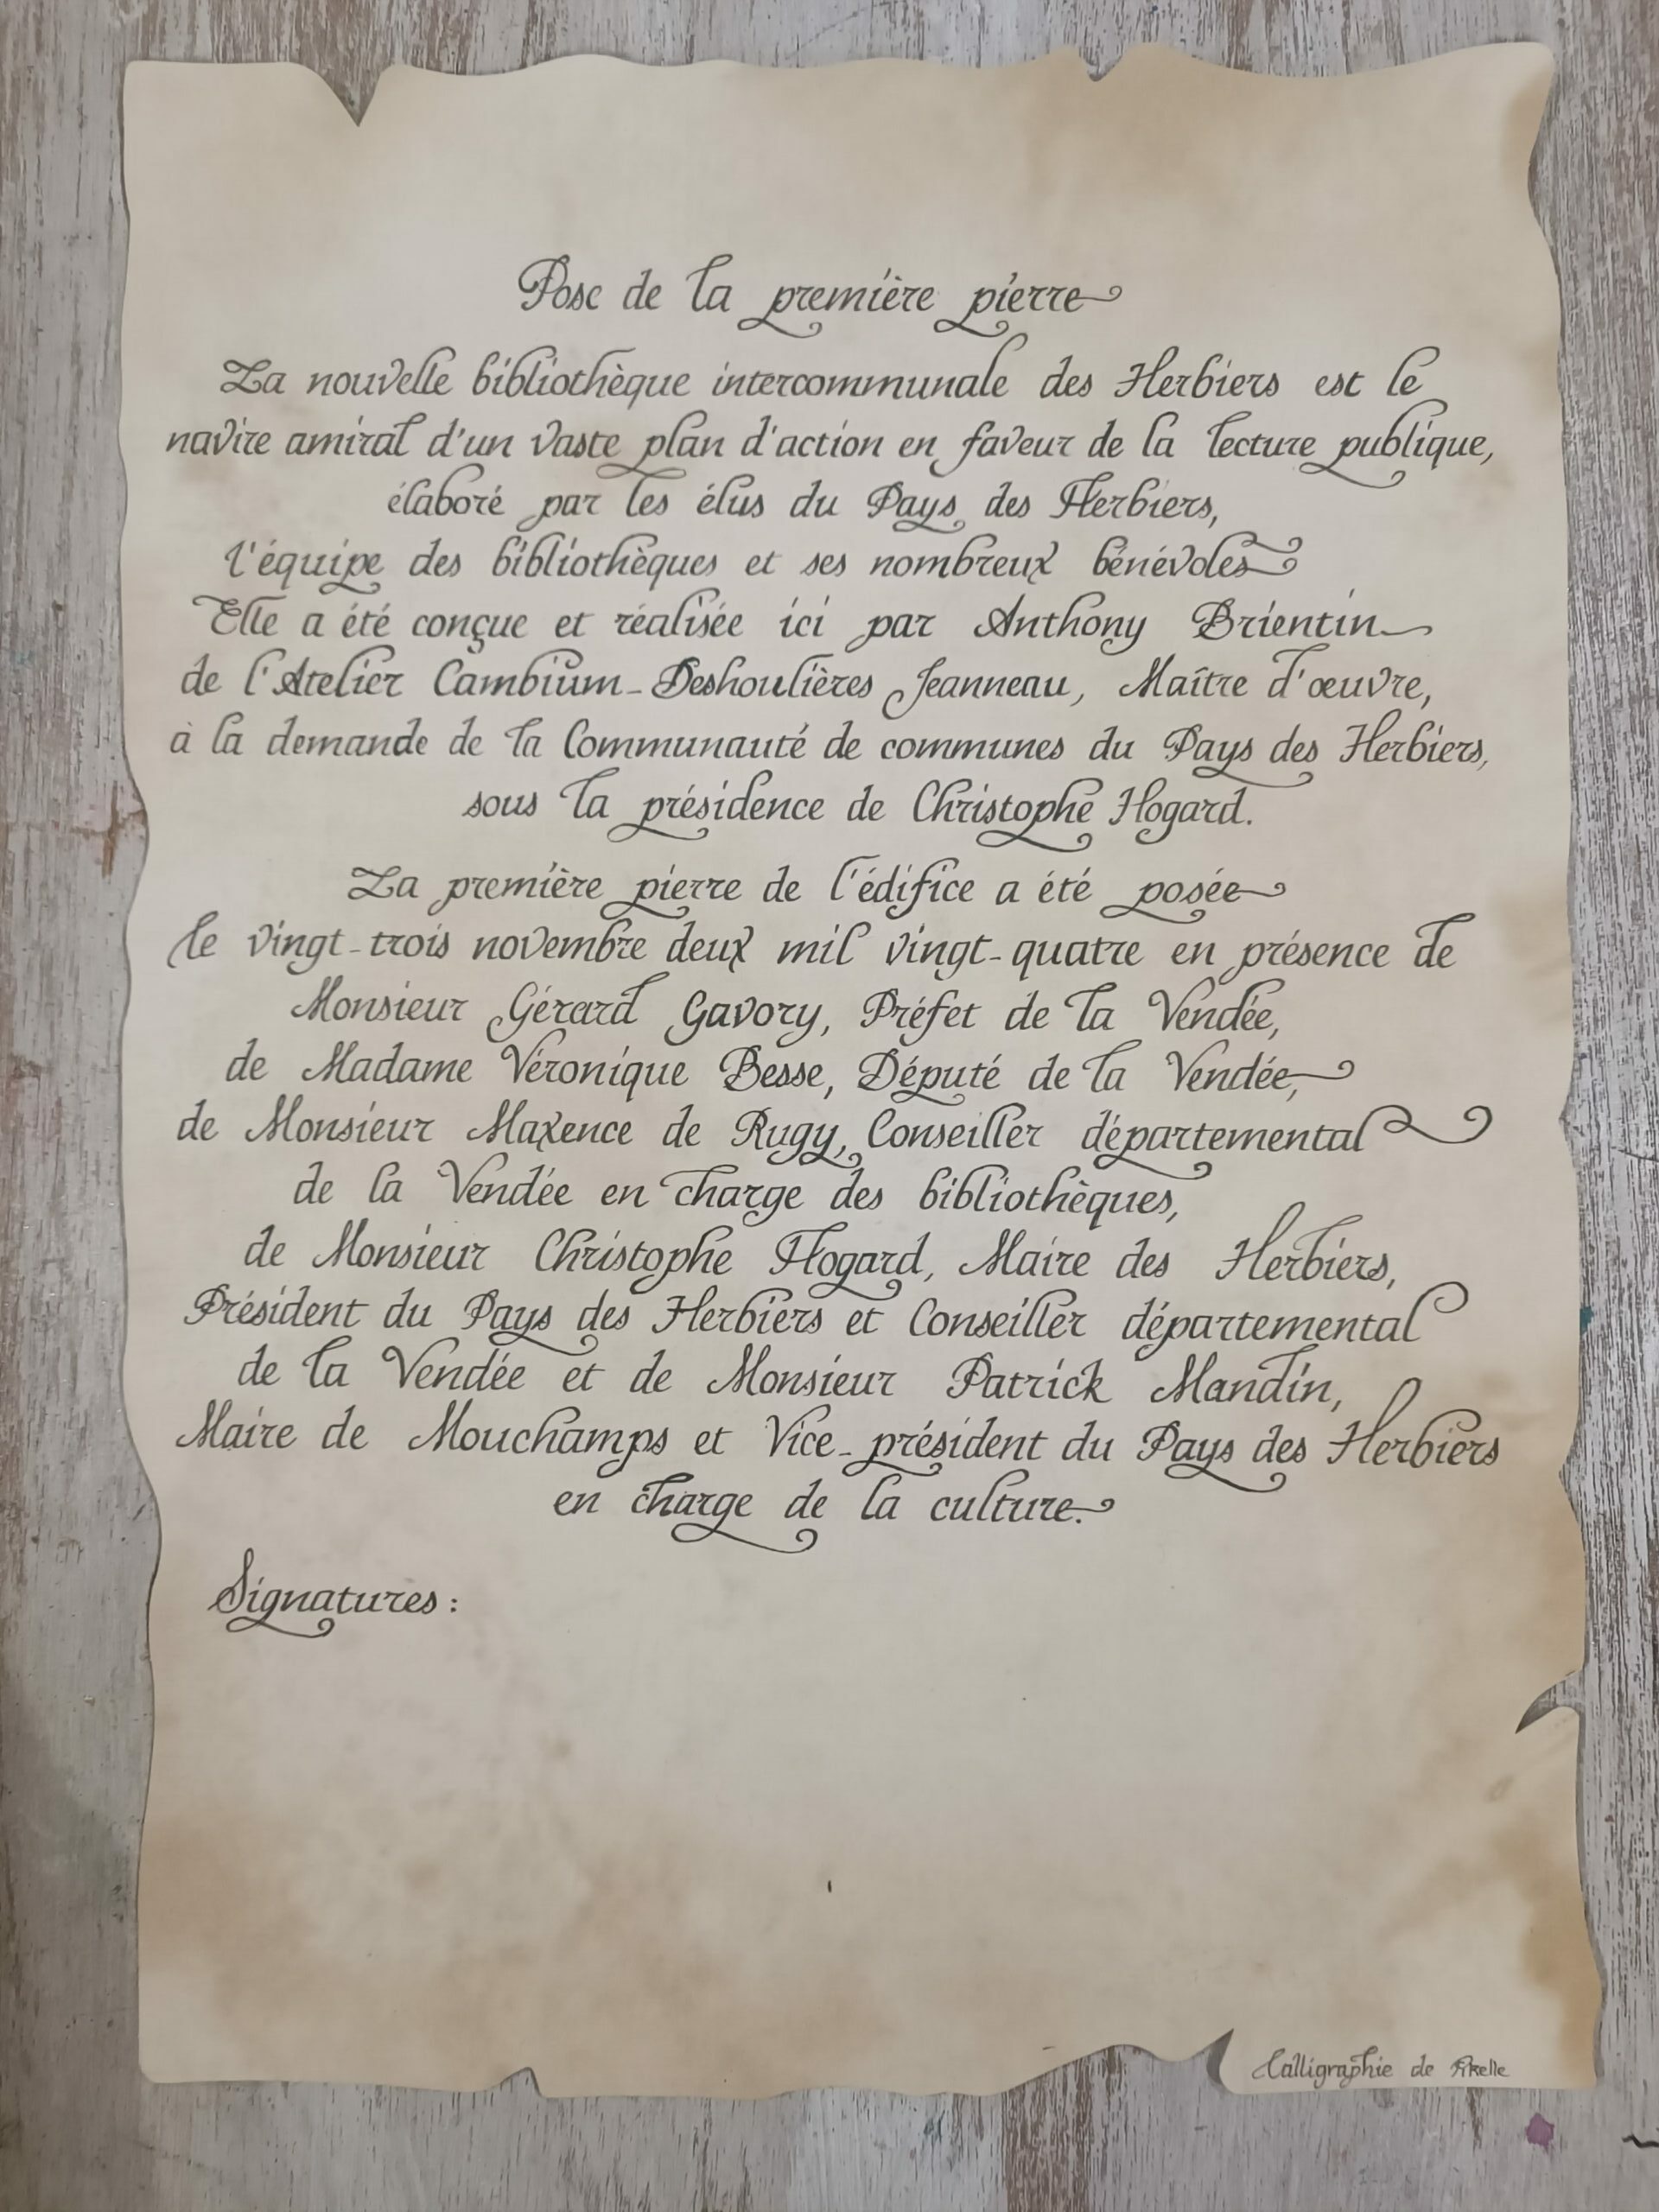 Pose de la première pierre
La nouvelle bibliothèque intercommunale des Herbiers est le
navire amiral d'un vaste plan d'action en faveur de la lecture publique,
élaboré par les élus du Pays des Herbiers,
l'équipe des bibliothèques et ses nombreux bénévoles
Elle a été conçue et réalisée ici par Anthony Brientin
de l'Atelier Cambium-Deshoulières Jeanneau, Maître d'œuvre,
à la demande de la Communauté de communes du Pays des Herbiers,
sous la présidence de Christophe Hogard.
La première pierre de l'édifice a été posée
le vingt-trois novembre deux mil vingt-quatre en présence de
Monsieur Gérard Gavory, Préfet de la Vendée,
de Madame Véronique Besse, Député de la Vendée,
de Monsieur Maxence de Rugy, Conseiller départemental
de la Vendée en charge des bibliothèques,
de Monsieur Christophe Hogard, Maire des Herbiers,
Président du Pays des Herbiers et Conseiller départemental
de la Vendée et de Monsieur Patrick Mandin,
Maire de Mouchamps et Vice-président du Pays des Herbiers
en charge de la culture.
Signatures :
Calligraphie de